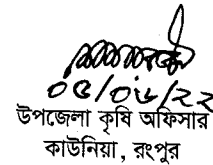 ০৫/০৬/২২
উপজেলা কৃষি অফিসার
কাউনিয়া, রংপুর